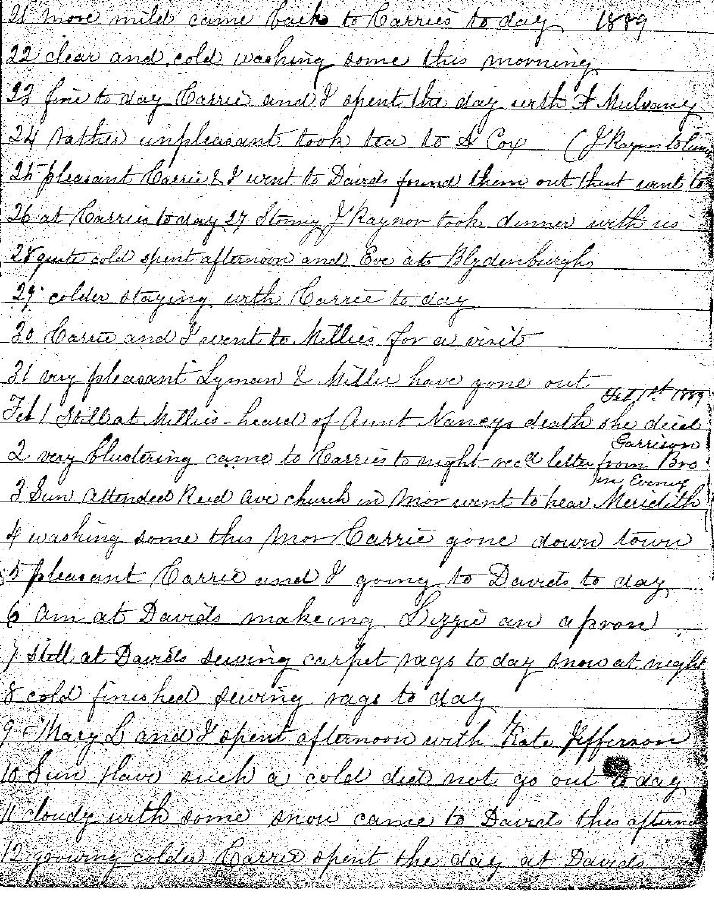 21 more mild came back to Carries to day 1889
22 clear and cold washing some this morning
23 fine to day Carrie and I spent the day with A Mulvany
24 rather unpleasant took tea to A Cox (J Raynor
25 pleasant Carrie & I went to Davids found them out went to
26 at Carries to day 27 Stormy J Raynor took dinner with us
28 quite cold spent afternoon and Eve at Blydenburghs
29 colder staying with Carrie to day
30 Carrie and I went to Millies for a visit
31 very pleasant Lyman & Millie have gone out
Feb 1st 1889
Feb 1 Still at Millies - heard of Aunt Nancys death she died
Garrison
2 very blustering came to Carries to night recd letter from Bro
in Evening
3 Sun attended Reid Ave church in Mor went to hear Meridith
4 washing some this Mor Carrie gone down town
5 pleasant Carrie and I going to Davids to day
6 am at Davids makeing Lizzie an apron
7 still at Davids sewing carpet rags to day snow at night
8 cold finished sewing rags to day
9 Mary L and I spent afternoon with Kate Jefferson
10 Sun Have such a cold did not go out to day
11 cloudy with some snow came to Davids this afternoon
12 growing colder Carrie spent the day at Davids